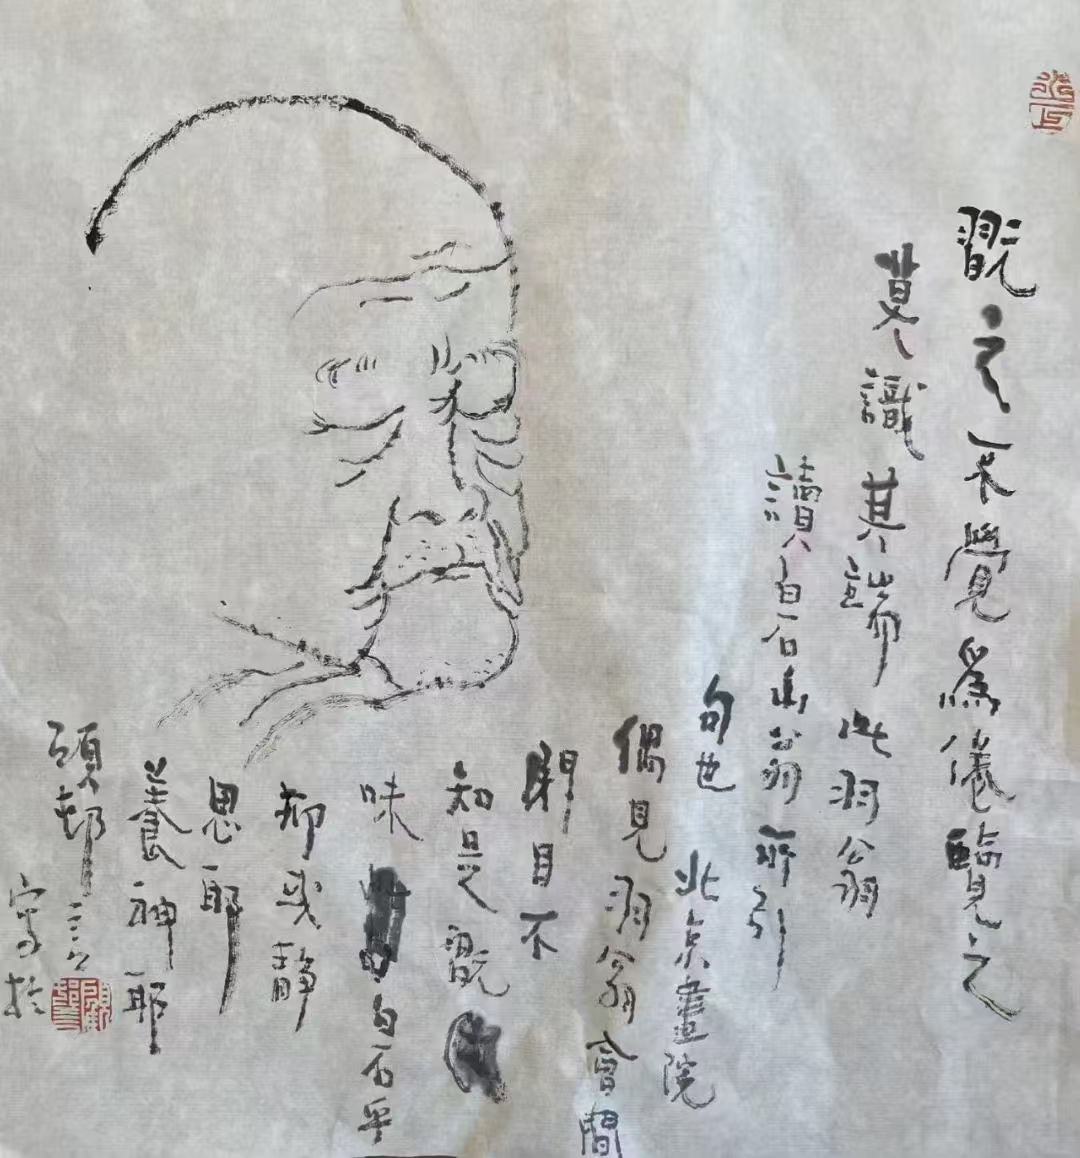 翫之不覺為倦覽之
莫識其端 此羽翁
讀白石山翁所引
句也 北京畫院
偶見羽翁會間
閉目不
知是翫
味白石乎
抑或靜
思耶
養神耶
顧邨言
寫於